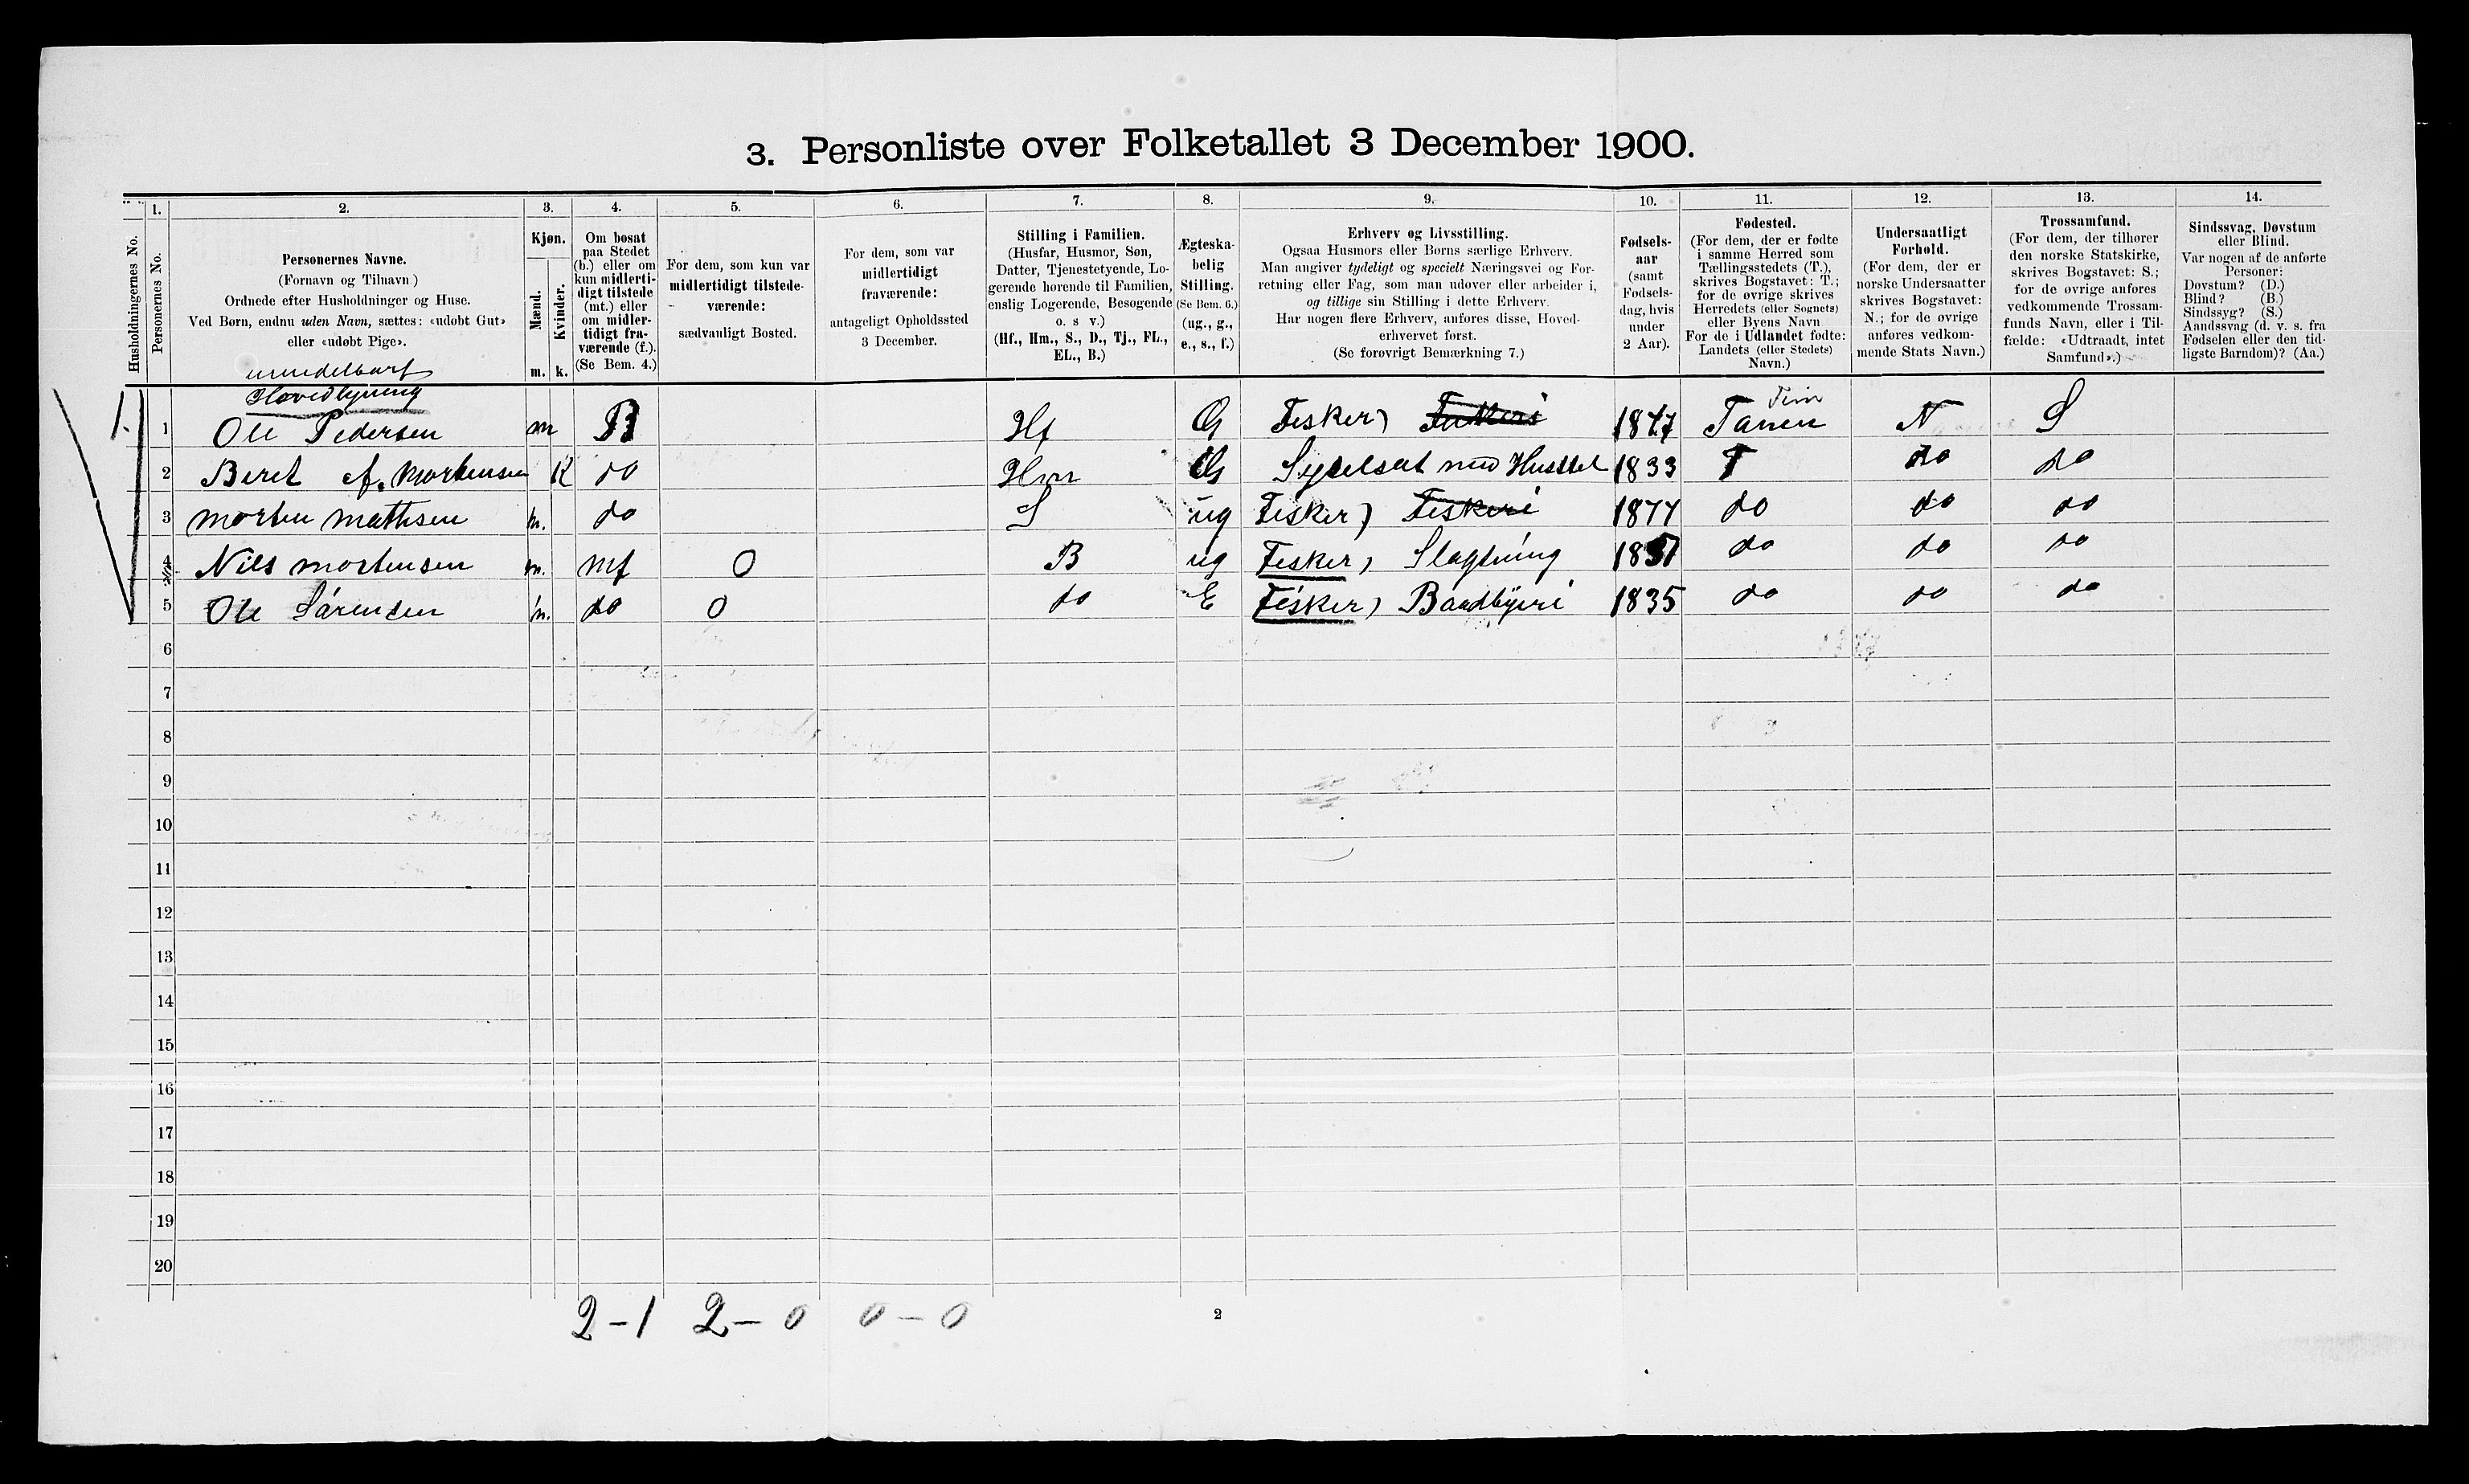 3. Personliste over Folketallet 3 December 1900.
1. 2. 3. 4. 5. 6. 7. 8. 9. 10. 11. 12. 13. 14.
Husholdningernes No.
Personernes No.
Personernes Navne.
(Fornavn og Tilnavn)
Ordnede efter Husholdninger og Huse.
Ved Børn, endnu uden Navn, sættes: «udøbt Gut»
eller «udøbt Pige».
Kjøn.
Mænd.
Kvinder.
m. k.
Om bosat
paa Stedet
(b.) eller om
kun midlerti-
digt tilstede
(mt.) eller
om midler-
tidigt fra-
værende (f.).
(Se Bem. 4.)
For dem, som kun var
midlertidigt tilstede-
værende:
sædvanligt Bosted.
For dem, som var
midlertidigt
fraværende:
antageligt Opholdssted
3 December.
Stilling i Familien.
(Husfar, Husmor, Søn,
Datter, Tjenestetyende, Lo-
gerende hørende til Familien,
enslig Logerende, Besøgende
o. s v.)
(Hf., Hm., S., D., Tj., FL.,
EL., B.)
Ægteska-
belig
Stilling.
(Se Bem. 6.)
(ug., g.,
e., s., f.)
Erhverv og Livsstilling.
Ogsaa Husmors eller Børns særlige Erhverv.
Man angiver tydeligt og specielt Næringsvei og For-
retning eller Fag, som man udøver eller arbeider i,
og tillige sin Stilling i dette Erhverv.
Har nogen flere Erhverv, anføres disse, Hoved-
erhvervet først.
(Se forøvrigt Bemærkning 7.)
Fødsels-
aar
(samt
Fødsels-
dag, hvis
under
2 Aar).
Fødested.
(For dem, der er fødte
i samme Herred som
Tællingsstedets (T.),
skrives Bogstavet: T.;
for de øvrige skrives
Herredets (eller Sognets)
eller Byens Navn
For de i Udlandet fødte:
Landets (eller Stedets)
Navn.)
Undersaatligt
Forhold.
(For dem, der er
norske Undersaatter
skrives Bogstavet:
N.; for de øvrige
anføres vedkom-
mende Stats Navn.)
Trossamfund.
(For dem, der tilhører
den norske Statskirke,
skrives Bogstavet: S.;
for de øvrige anføres
vedkommende Trossam-
funds Navn, eller i Til-
fælde: «Udtraadt, intet
Samfund».)
Sindssvag, Døvstum
eller Blind.
Var nogen af de anførte
Personer:
Døvstum? (D.)
Blind? (B.)
Sindssyg? (S.)
Aandssvag (d. v. s. fra
Fødselen eller den tid-
ligste Barndom)? (Aa.)
Hovedbygning
1. 1 Ole Pedersen m B Hf G Fisker) 1847 Tanen N S
2 Beret Mortensen K do Hm G 1833 T do do
3 morten mathisen m. do S ug Fisker) Fiskeri 1877 do do do
4 Nils mortensen m. mf 0 B ug Fisker, 1857 do do do
5 Ole Sørensen m. do 0 do E Fisker) Baadbyeri 1835 do do do
6
7
8
9
10
11
12
13
14
15
16
17
18
19
20
2-1 2-0 0-0
2